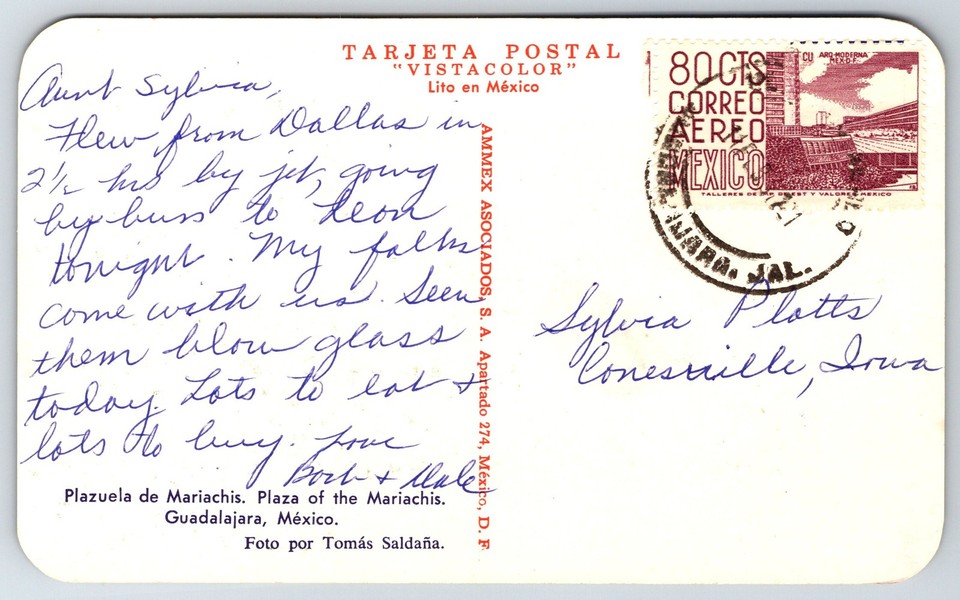 TARJETA POSTAL
"VISTACOLOR"
Lito en México
Aunt Sylvia,
Flew from Dallas in
2½ hrs by jet, going
by buss to Leon
tonight. My folks
come with us. Seen
them blow glass
today. Lots to eat +
lots to buy. Love
Barb + Dale
Plazuela de Mariachis. Plaza of the Mariachis.
Guadalajara, México.
Foto por Tomás Saldaña.
AMMEX ASOCIADOS, S. A. Apartado 274, México, D. F.
80 CTS
CORREO
AEREO
MEXICO
CU ARQ-MODERNA
MEX. D.F.
TALLERES DE IMP. DE EST. Y VALORES-MEXICO
JAL.
Sylvia Platts
Conesville, Iowa